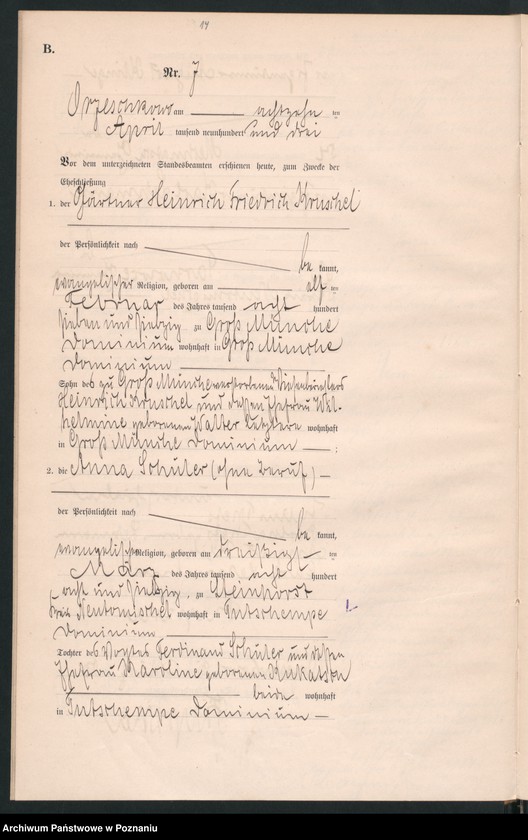 14
B.
Nr. 7
Orzeschkowo am achtzehn ten
April tausend neunhundert und drei
Vor dem unterzeichneten Standesbeamten erschienen heute, zum Zwecke der
Eheschließung
1. der Gärtner Heinrich Friedrich Kruschel
der Persönlichkeit nach
be kannt,
evangelischer Religion, geboren am elf ten
Februar des Jahres tausend acht hundert
sieben und siebzig zu Groß Münche
Dominium wohnhaft in Groß Münche
Dominium
Sohn des zu Groß Münche verstorbenen
Heinrich Kruschel und dessen Ehefrau Wil-
helmine geborenen Walter Letztere wohnhaft
in Groß Münche Dominium ;
2. die Anna Schüler (ohne Beruf)
der Persönlichkeit nach
be kannt,
evangelischer Religion, geboren am dreißigst ten
März des Jahres tausend acht hundert
acht und siebzig zu Steinhorst
Kreis Neutomischel wohnhaft in Gutschempe
Dominium
Tochter des Vogtes Ferdinand Schüler und dessen
Ehefrau Karoline geborenen
beide wohnhaft
in Gutschempe Dominium
Archiwum Państwowe w Poznaniu